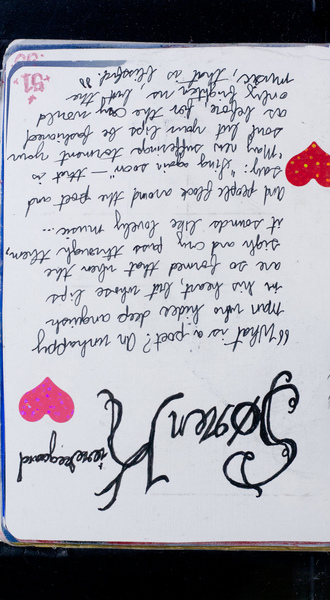 Søren Kierkegaard
"What is a poet? An unhappy
man who hides deep anguish
in his heart, but whose lips
are so formed that when the
sigh and cry pass through them,
it sounds like lovely music...
And people flock around the poet and
say: "Sing again soon" – that is
"May new sufferings torment your
soul but your lips be fashioned
as before for the cry would
only frighten us, but the
music, that is blissful"